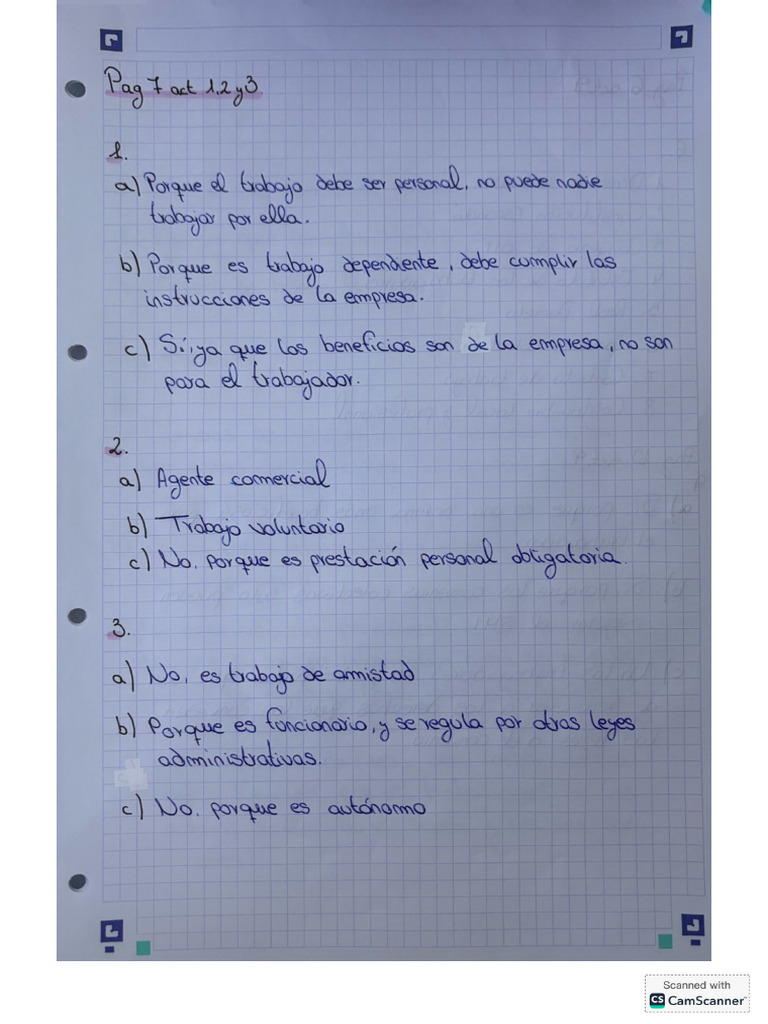 Pag 7 act 1,2 y 3
1.
a) Porque el trabajo debe ser personal, no puede nadie
trabajar por ella.
b) Porque es trabajo dependiente, debe cumplir las
instrucciones de la empresa.
c) Sí, ya que los beneficios son de la empresa, no son
para el trabajador.
2.
a) Agente comercial
b) Trabajo voluntario
c) No, porque es prestación personal obligatoria.
3.
a) No, es trabajo de amistad
b) Porque es funcionario, y se regula por otras leyes
administrativas.
c) No, porque es autónomo
Scanned with
CS CamScanner